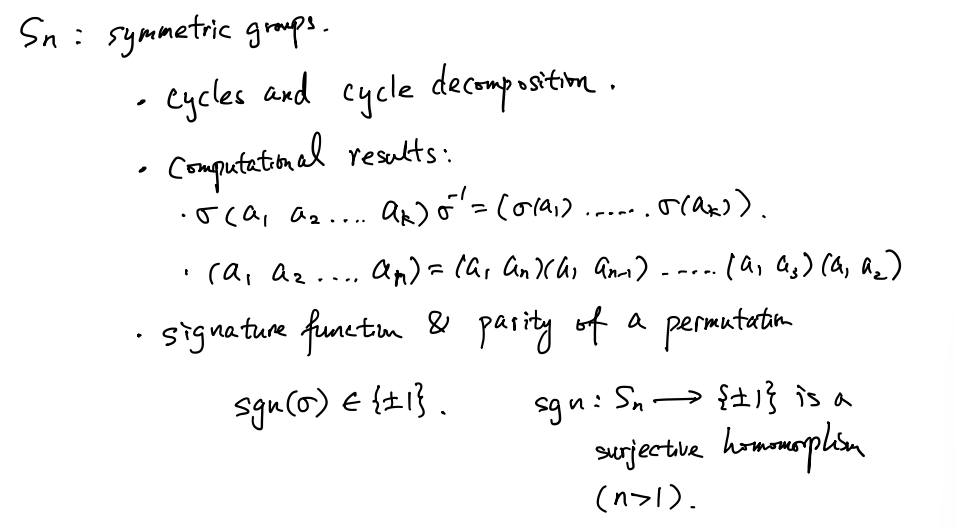 Sn : symmetric groups.
· cycles and cycle decomposition.
· Computational results:
· σ(a₁ a₂ .... aₖ)σ⁻¹ = (σ(a₁) ....... σ(aₖ)).
· (a₁ a₂ .... aₙ) = (a₁ aₙ)(a₁ aₙ₋₁) ...... (a₁ a₃)(a₁ a₂)
· signature function & parity of a permutation
sgn(σ) ∈ {±1}. sgn : Sn ⟶ {±1} is a
surjective homomorphism
(n>1).